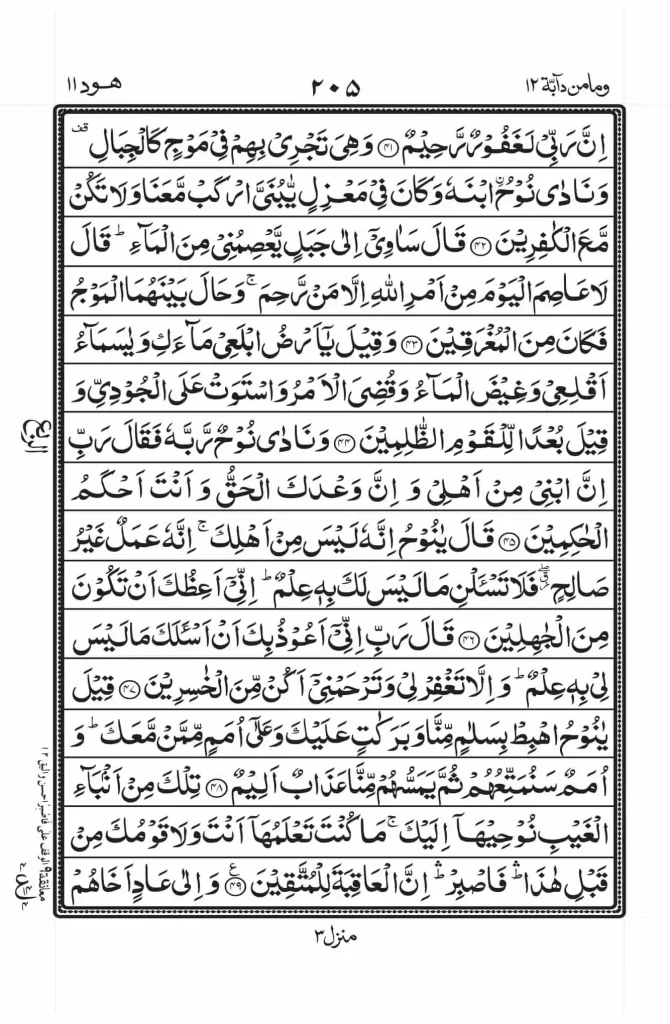 ومامن دآبّة ١٢
٢٠٥
هـود ١١
اِنَّ رَبِّیْ لَغَفُوْرٌ رَّحِیْمٌ ﴿۴۱﴾ وَهِیَ تَجْرِیْ بِهِمْ فِیْ مَوْجٍ كَالْجِبَالِ قف
وَنَادٰی نُوْحُ اِ۟بْنَهٗ وَكَانَ فِیْ مَعْزِلٍ یّٰبُنَیَّ ارْكَبْ مَّعَنَا وَلَا تَكُنْ
مَّعَ الْكٰفِرِیْنَ ﴿۴۲﴾ قَالَ سَاٰوِیْۤ اِلٰی جَبَلٍ یَّعْصِمُنِیْ مِنَ الْمَآءِ ؕ قَالَ
لَا عَاصِمَ الْیَوْمَ مِنْ اَمْرِ اللّٰهِ اِلَّا مَنْ رَّحِمَ ۚ وَحَالَ بَیْنَهُمَا الْمَوْجُ
فَكَانَ مِنَ الْمُغْرَقِیْنَ ﴿۴۳﴾ وَقِیْلَ یٰۤاَرْضُ ابْلَعِیْ مَآءَكِ وَیٰسَمَآءُ
اَقْلِعِیْ وَغِیْضَ الْمَآءُ وَقُضِیَ الْاَمْرُ وَاسْتَوَتْ عَلَی الْجُوْدِیِّ وَ
قِیْلَ بُعْدًا لِّلْقَوْمِ الظّٰلِمِیْنَ ﴿۴۴﴾ وَنَادٰی نُوْحٌ رَّبَّهٗ فَقَالَ رَبِّ
اِنَّ ابْنِیْ مِنْ اَهْلِیْ وَ اِنَّ وَعْدَكَ الْحَقُّ وَ اَنْتَ اَحْكَمُ
الْحٰكِمِیْنَ ﴿۴۵﴾ قَالَ یٰنُوْحُ اِنَّهٗ لَیْسَ مِنْ اَهْلِكَ ۚ اِنَّهٗ عَمَلٌ غَیْرُ
صَالِحٍ فَلَا تَسْـَٔلْنِ مَا لَیْسَ لَكَ بِهٖ عِلْمٌ ؕ اِنِّیْۤ اَعِظُكَ اَنْ تَكُوْنَ
مِنَ الْجٰهِلِیْنَ ﴿۴۶﴾ قَالَ رَبِّ اِنِّیْۤ اَعُوْذُ بِكَ اَنْ اَسْـَٔلَكَ مَا لَیْسَ
لِیْ بِهٖ عِلْمٌ ؕ وَ اِلَّا تَغْفِرْ لِیْ وَتَرْحَمْنِیْۤ اَكُنْ مِّنَ الْخٰسِرِیْنَ ﴿۴۷﴾ قِیْلَ
یٰنُوْحُ اهْبِطْ بِسَلٰمٍ مِّنَّا وَبَرَكٰتٍ عَلَیْكَ وَعَلٰۤی اُمَمٍ مِّمَّنْ مَّعَكَ ؕ وَ
اُمَمٌ سَنُمَتِّعُهُمْ ثُمَّ یَمَسُّهُمْ مِّنَّا عَذَابٌ اَلِیْمٌ ﴿۴۸﴾ تِلْكَ مِنْ اَنْۢبَآءِ
الْغَیْبِ نُوْحِیْهَاۤ اِلَیْكَ ۚ مَا كُنْتَ تَعْلَمُهَاۤ اَنْتَ وَلَا قَوْمُكَ مِنْ
قَبْلِ هٰذَا ۛؕ فَاصْبِرْ ۛؕ اِنَّ الْعَاقِبَةَ لِلْمُتَّقِیْنَ ﴿۴۹﴾ ع وَ اِلٰی عَادٍ اَخَاهُمْ
منزل ٣
الربع